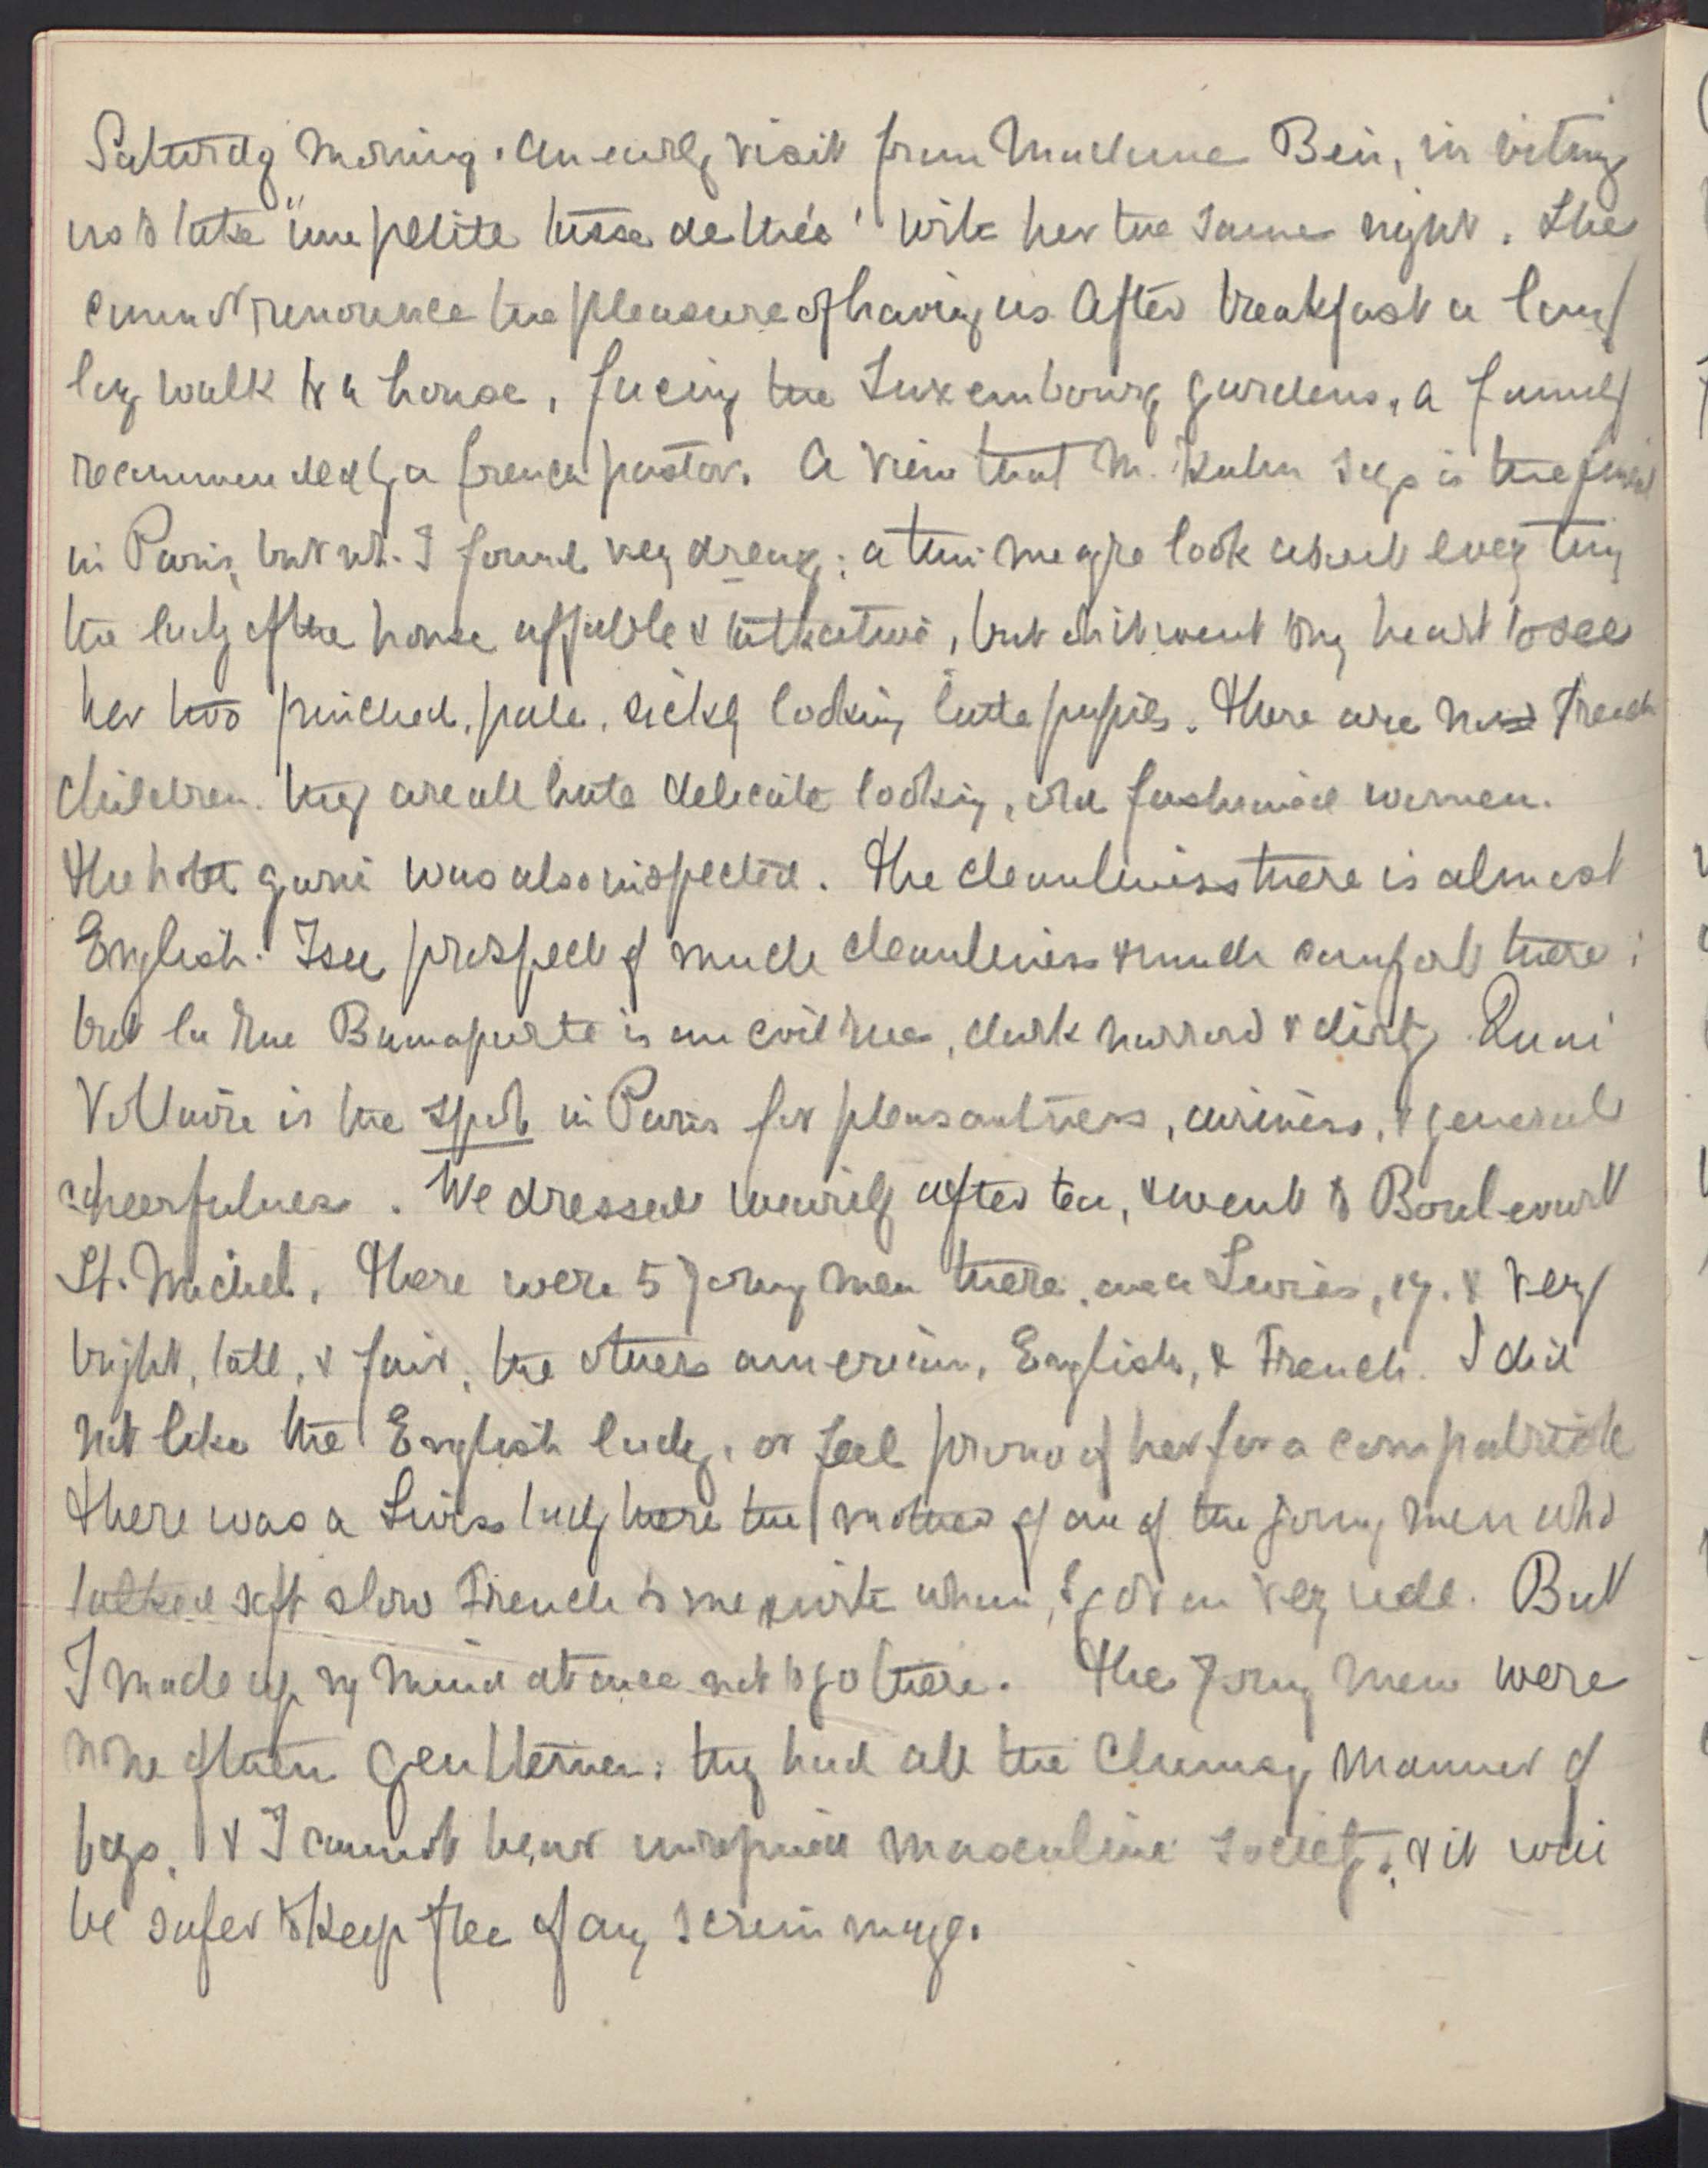 Saturdy Morning. An early visit from Madame Bein, inviting
us to take "une petite tasse de thée" with her the same night. She
cannot renounce the pleasure of having us. After breakfast a long
leg walk to a house, facing the Luxembourg gardens, a family
recommended by a french pastor. A view that M. Kuhn says is the finest
in Paris, but wh. I found very dreary; a thin meagre look about every thing
the lady of the house affable & talkative, but oh it went to my heart to see
her two pinched, pale, sickly looking little pupils. There are no French
children. they are all little delicate looking, old fashioned women.
The hotel garni was also inspected. The cleanliness there is almost
English. I see prospect of much cleanliness & much comfort there;
but la Rue Bonaparte is an evil rue, dark narrow & dirty. Quai
Voltaire is the spot in Paris for pleasantness, airiness, & general
cheerfulness. We dressed wearily after tea, & went to Boulevart
St. Michel. There were 5 young men there, one a Swiss, 17. & very
bright, tall, & fair, the others american, English, & French. I did
not like the English lady, or feel proud of her for a compatriote
There was a Swiss lady there the mother of one of the young men who
talked soft slow French to me, with whom I got on very well. But
I made up my mind at once not to go there. The young men were
none of them gentlemen; they had all the clumsy manner of
boys, & I cannot bear unrefined masculine society, & it will
be safer to keep free of any scrimmage.